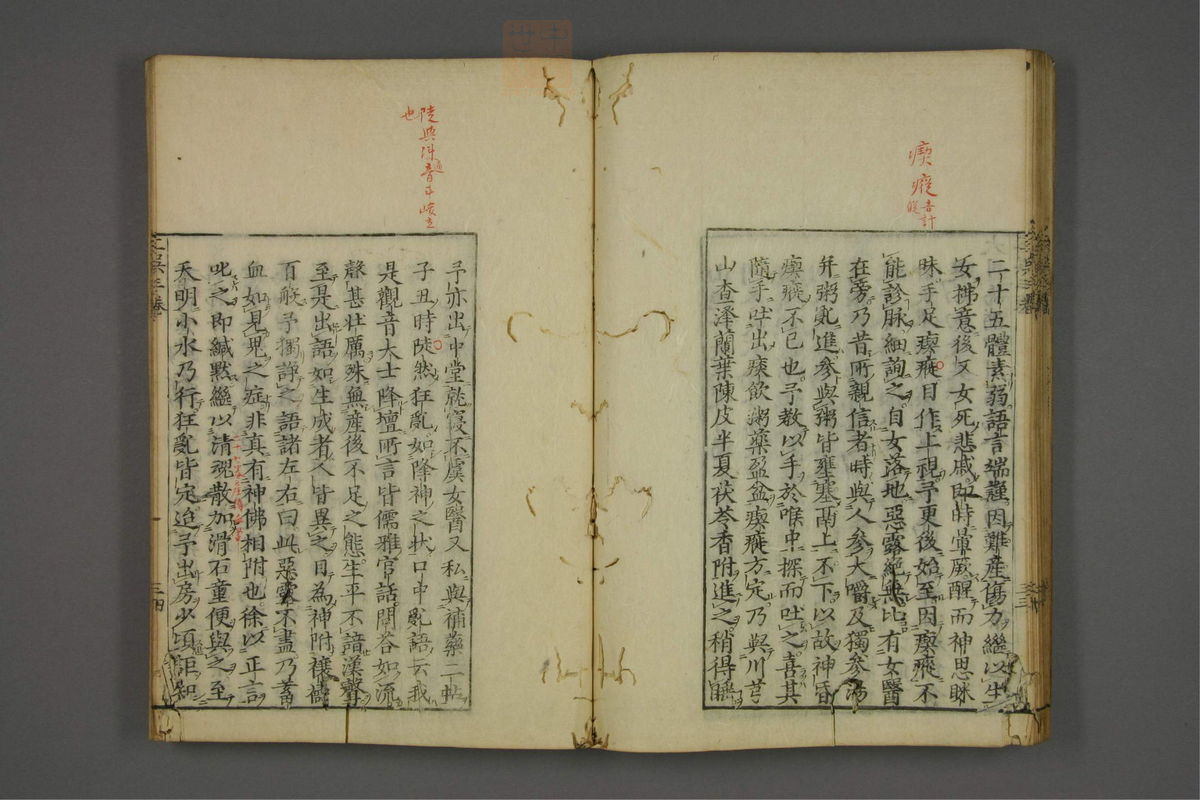 瘈瘲音計
二十五體素弱語言端謹因難產傷力繼以生
女拂意後又女死悲戚即時暈厥醒而神思昧
昧手足瘈瘲目作上視予更後始至因瘈瘲不
能診脉細詢之自女落地惡露絕無比有女醫
在旁乃昔所親信者時與人參大嚼及獨參湯
并粥亂進參與粥皆壅塞鬲上不下以故神昏
瘈瘲不已也予教以手於喉中探而吐之喜其
隨手吐出痰飲粥藥盈盆瘈瘲方定乃與川芎
山查澤蘭葉陳皮半夏茯苓香附進之稍得睡
陡與
也
予亦出中堂就寢不虞女醫又私與補藥二帖
子丑時陡然狂亂如降神之狀口中亂語云我
是觀音大士降壇所言皆儒雅官話問答如流
聲甚壯厲殊無產後不足之態生平不諳漢聲
至是出語如生成者人皆異之目為神附禳禱
百般予獨諍之語諸左右曰此惡露不盡乃蓄
血如見鬼之症非真有神佛相附也徐以正言
叱之即緘默繼以清魂散加滑石童便與之至
天明小水乃行狂亂皆定迨予出房少頃詎知